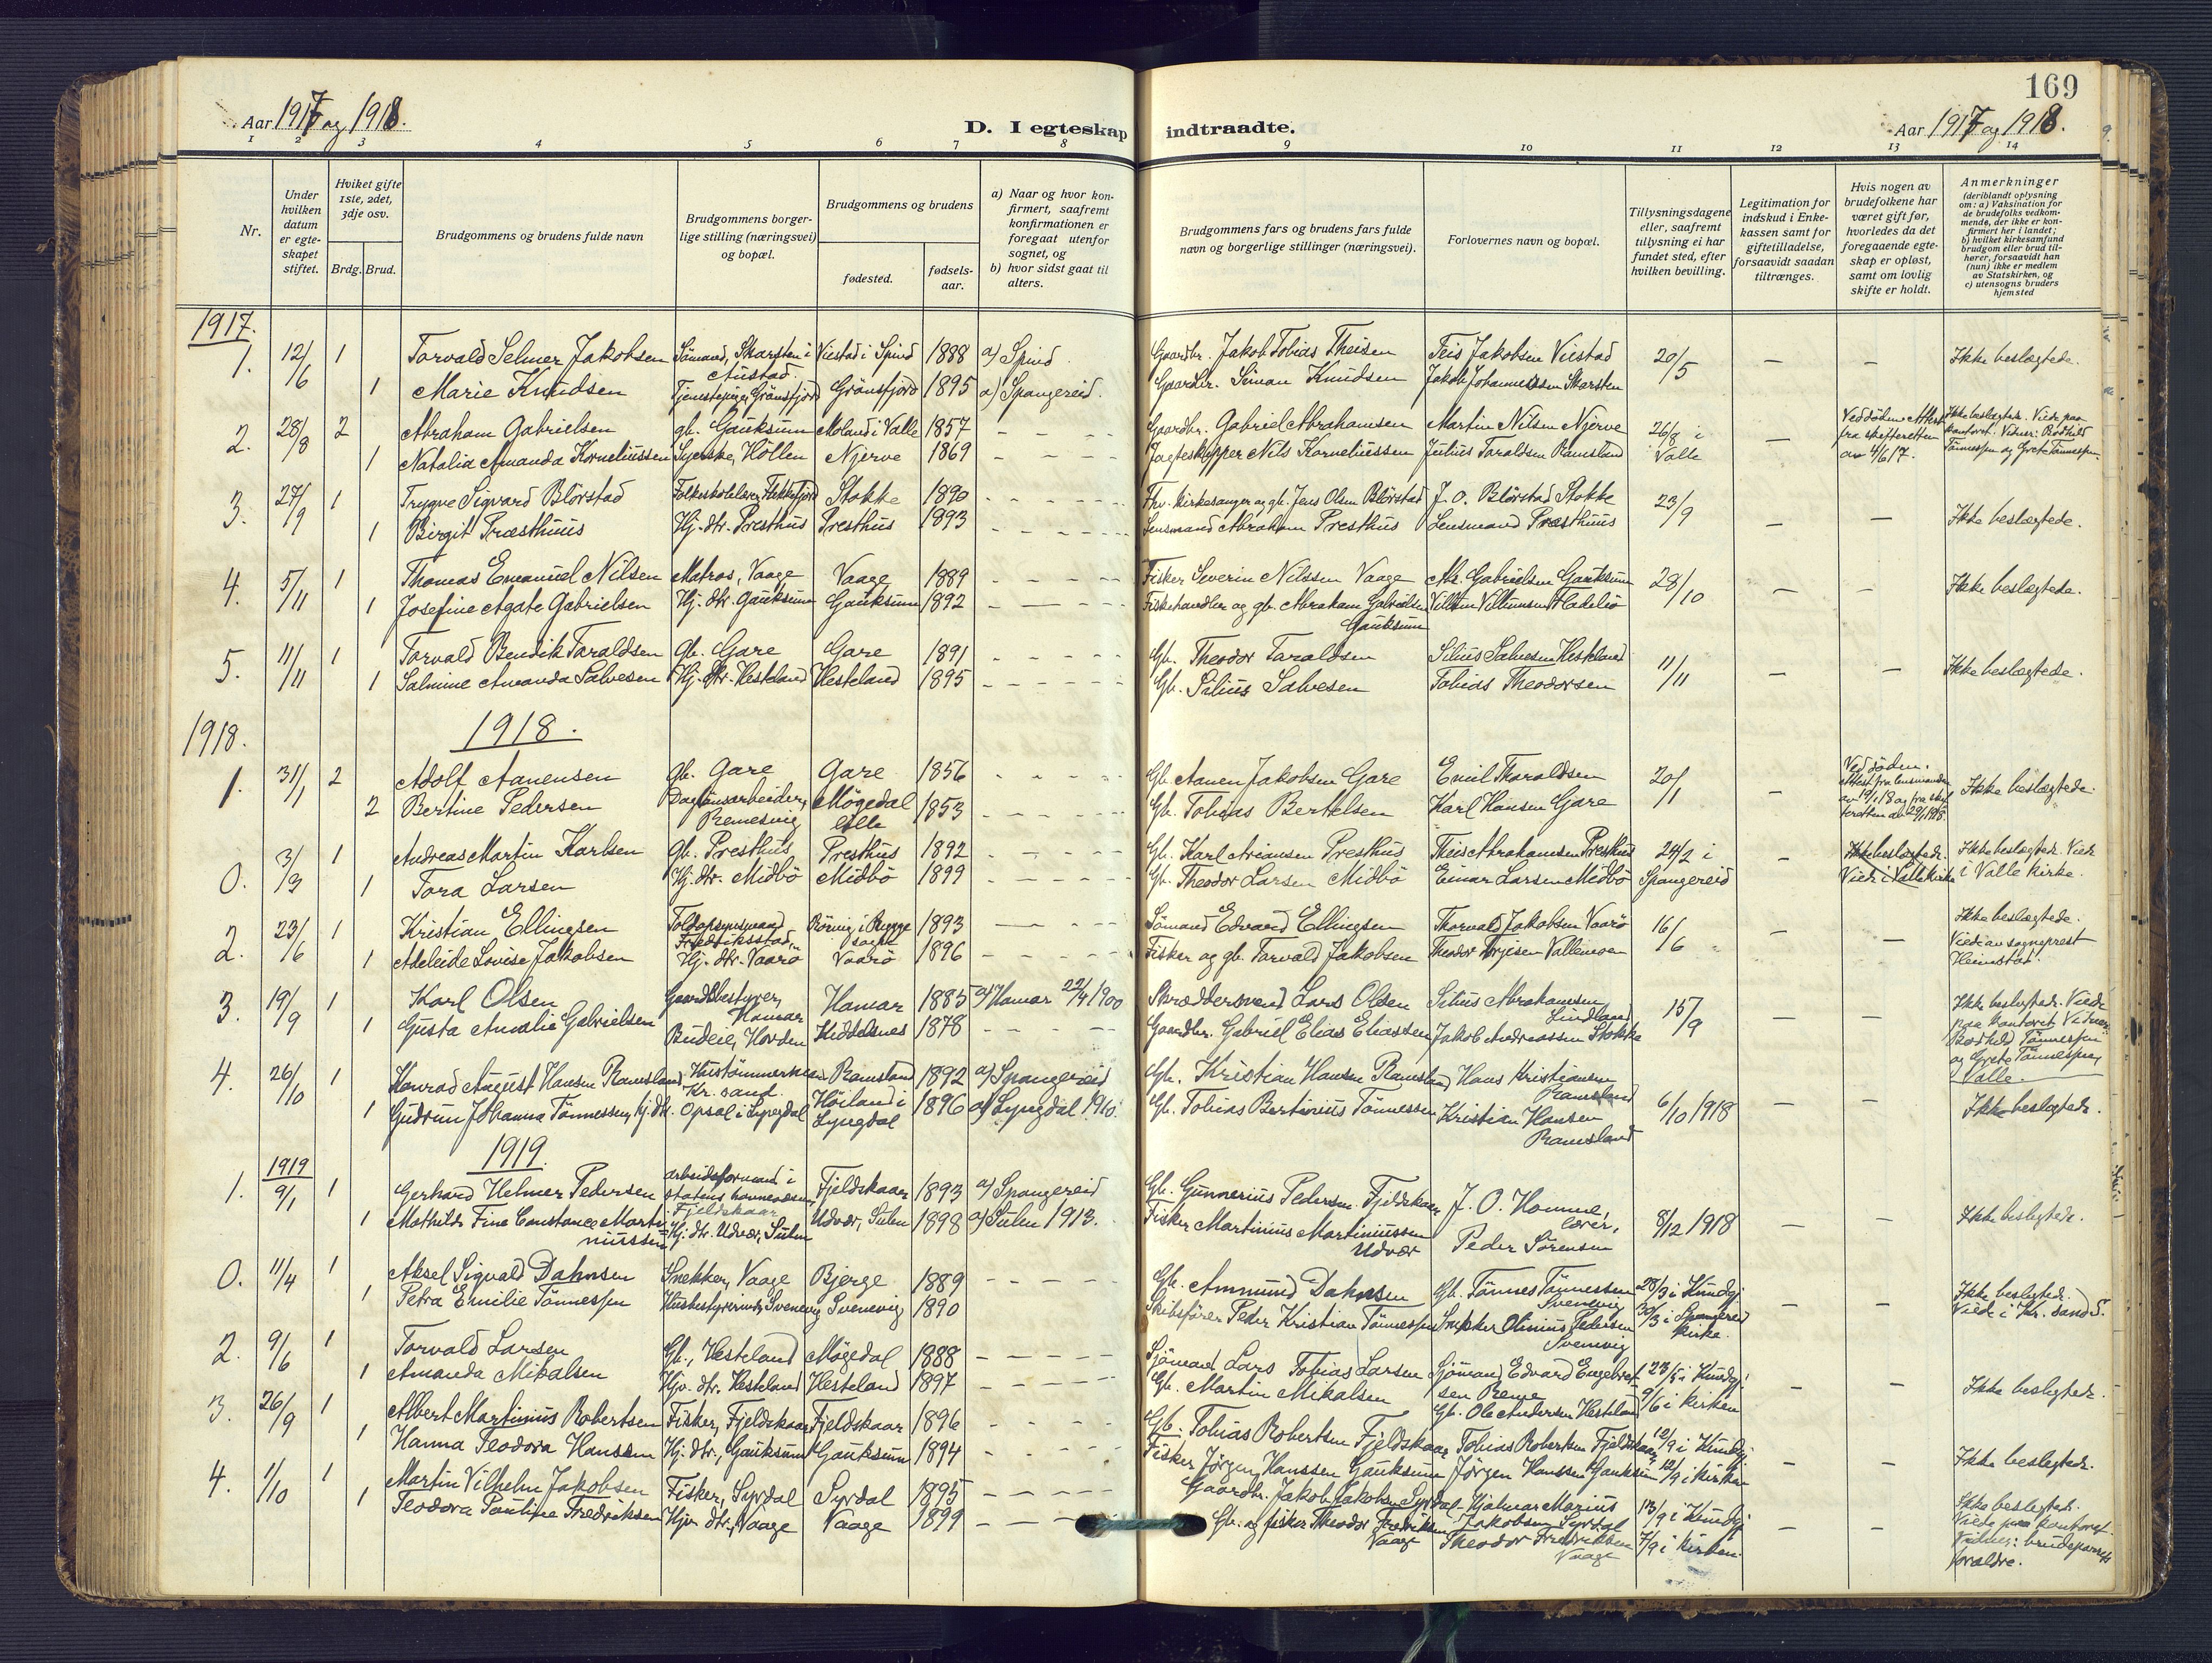 169
Aar 1917 og 1918.
D. I egteskap indtraadte.
Aar 1917 og 1918.
1 2 3 4 5 6 7 8 9 10 11 12 13 14
Nr.
Under hvilken datum er egteskapet stiftet.
Hviket gifte 1ste, 2det, 3dje osv.
Brdg. Brud.
Brudgommens og brudens fulde navn
Brudgommens borgerlige stilling (næringsvei) og bopæl.
Brudgommens og brudens
fødested.
fødselsaar.
a) Naar og hvor konfirmert, saafremt konfirmationen er foregaat utenfor sognet, og
b) hvor sidst gaat til alters.
Brudgommens fars og brudens fars fulde navn og borgerlige stillinger (næringsvei).
Forlovernes navn og bopæl.
Tillysningsdagene eller, saafremt tillysning ei har fundet sted, efter hvilken bevilling.
Legitimation for indskud i Enkekassen samt for giftetilladelse, forsaavidt saadan tiltrænges.
Hvis nogen av brudefolkene har været gift før, hvorledes da det foregaaende egteskap er opløst, samt om lovlig skifte er holdt.
Anmerkninger (deriblandt oplysning om: a) Vaksination for de brudefolks vedkommende, der ikke er konfirmert her i landet; b) hvilket kirkesamfund brudgom eller brud tilhører, forsaavidt han (hun) ikke er medlem av Statskirken, og c) utensogns bruders hjemsted
1917.
1. 12/6 1 Torvald Selmer Jakobsen Sömand, Skarsten i Austad. Viestad i Spind 1888 a) Spind Gaardbr. Jakob Tobias Theisen Teis Jakobsen Viestad 20/5 — — Ikke beslægtede.
1 Marie Knudsen Grönsfjord 1895 a) Spangereid. Gaardbr. Simon Knudsen Jakob Johannessen Skarsten
2. 28/8 2 Abraham Gabrielsen gb. Gauksum Moland i Valle 1857 Gaardbr. Gabriel Abrahamsen Martin Nilsen Njerve 26/8 i Valle — Ved döden. Attest fra skifteretten av 4/6 17. Ikke beslægtede. Viede paa kontoret. Vidner: Bodhild Tönnessen og Grete Tönnessen.
1 Natalia Amanda Korneliussen Syerske, Höllen Njerve 1869 Jagteskipper Nils Korneliussen Julius Taraldsen Ramsland
3. 27/9 1 Trygve Sigvard Blörstad Folkeskolelærer, Flekkefjord Stokke 1890 Fhv. kirkesanger og gb. Jens Olsen Blörstad J. O. Blörstad Stokke 23/9 — — Ikke beslægtede.
1 Birgit Præsthuus Hj. dtr. Presthus Presthus 1893 Lensmand Abraham Presthus Lensmand Præsthuus
4. 5/11 1 Thomas Emanuel Nilsen Matros, Vaage Vaage 1889 Fisker Severin Nilssen Vaage Abr. Gabrielsen Gauksum 28/10 — — Ikke beslægtede.
1 Josefine Agate Gabrielsen Hj. dtr. Gauksum Gauksum 1892 Fiskehandler og gb. Abraham Gabrielsen Gauksum
5. 11/11 1 Torvald Bendik Taraldsen gb. Gare Gare 1891 Gb. Theodor Taraldsen Silius Salvesen Hesteland 11/11 — — Ikke beslægtede.
1 Salmine Amanda Salvesen Hj. dtr. Hesteland Hesteland 1895 Gb. Silius Salvesen Tobias Theodorsen
1918.
1918.
1. 31/1 2 Adolf Aanensen gb. Gare Gare 1856 Gb. Aanen Jakobsen Gare Emil Tharaldsen 20/1 — Ved döden. Ikke beslægtede.
2 Bertine Pedersen Remesvig Mögedal 1853 Gb. Tobias Bertelsen Karl Hansen Gare
0. 3/3 1 Andreas Martin Karlsen gb. Presthus Presthus 1892 Gb. Karl Ariansen Presthus Theis Abrahamsen Presthus 24/2 i Spangereid — Ikke beslægtede. Viede i Valle kirke. Ikke beslægtede. Viede i Valle kirke.
1 Tora Larsen Hj. dtr. Midbö Midbö 1899 Gb. Theodor Larsen Midbö Einar Larsen Midbö
2. 23/6 1 Kristian Ellingsen Toldopsynsmand Fredriksstad Röring i Rygge sogn 1893 Sömand Edvard Ellingsen Thorvald Jakobsen Vaarö 16/6 — — Ikke beslægtede. Viede av sogneprest Heimstad.
1 Adeleide Lovise Jakobsen Hj. dtr. Vaarö Vaarö 1896 Fisker og gb. Torvald Jakobsen Theodor Torjesen Vallemoen
3. 19/9 1 Karl Olsen Gaardsbestyrer, Hamar Hamar 1885 a) Hamar 22/4 1900 Skræddersvend Lars Olsen Silius Abrahamsen Lindland 15/9 — — Ikke beslegtede. Viede paa kontoret. Vidner: Bodhild Tönnessen og Grete Tönnessen, Valle.
1 Gusta Amalie Gabrielsen Budeie, Horden Kiddelsnes 1878 Gaardbr. Gabriel Elias Eliassen Jakob Andreassen Stokke
4. 26/10 1 Konrad August Hansen Ramsland Hustömmermann Kr. sand. Ramsland 1892 a) Spangereid Gb. Kristian Hansen Ramsland Hans Kristiansen Ramsland 6/10 1918 — — Ikke beslegtede.
1 Gudrun Johanna Tönnessen, hj. dtr. Opsal i Lyngdal Höiland i Lyngdal 1896 a) Lyngdal 1910. Gb. Tobias Bertinius Tönnessen Kristian Hansen Ramsland
1919.
1. 1919 9/1 1 Gerhard Helmer Pedersen arbeidsformand i statens havnevæsen, Fjeldskaar Fjeldskaar 1893 a) Spangereid Gb. Gunnerius Pedersen Fjeldskaar J. O. Homme, lærer, 8/12 1918 — — Ikke beslegtede.
1 Mathilde Fine Constance Martinussen Hj. dtr. Udvær, Sulen Udvær, Sulen 1898 a) Sulen 1913. Fisker Martinius Martiniussen Udvær Peder Sörensen
0. 11/4 1 Aksel Sigvald Dahnsen Snekker, Vaage Bjerge 1889 Gb. Ammund Dahnsen Gb. Tönnes Tönnessen Svenevig 28/3 i Kundgj. 30/3 i Spangereid kirke. — — Ikke beslegtede. Viede i Kr. sand S.
1 Petra Emilie Tönnessen Husbestyrerinde, Svenevig Svenevig 1890 Skibsförer Peder Kristian Tönnessen Snekker Olinius Pedersen Svenevig
2. 9/6 1 Torvald Larsen Gb., Hesteland Mögedal 1888 Sjömand Lars Tobias Larsen Sjömand Edvard Engebretsen Reme 23/5 i Kundgj. 9/6 i kirken — — Ikke beslegtede.
1 Amanda Mikalsen Hjv. dtr. Hesteland Hesteland 1897 Gb. Martin Mikalsen Gb. Ole Andersen Hesteland
3. 26/9 1 Albert Martinius Robertsen Fisker, Fjeldskaar Fjeldskaar 1896 Gb. Tobias Robertsen Fjeldskaar Tobias Robertsen Fjeldskaar 12/9 i Kundgj. 12/9 i kirken — — Ikke beslegtede.
1 Hanna Teodora Hanssen Hj. dtr., Gauksum Gauksum 1894 Fisker Jörgen Hanssen Gauksum Jörgen Hanssen Gauksum
4. 1/10 1 Martin Vilhelm Jakobsen Fisker, Syrdal Syrdal 1895 Gaardbr. Jakob Jakobsen Syrdal Hjalmar Marius Jakobsen Syrdal 13/9 i Kundgj. 7/9 i kirken. — — Ikke beslegtede. Viede paa kontoret. Vidner: brudeparrets forældre.
1 Teodora Pauline Fredriksen Hjv. dtr., Vaage Vaage 1899 Gb. og fisker Theodor Fredriksen Vaage Theodor Fredriksen Vaage